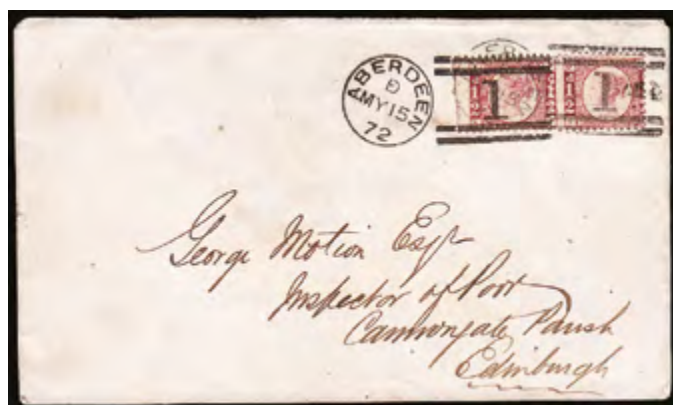 ABERDEEN
9
MY 15
72
1
1
George Motion Esqr
Inspector of Poor
Cannongate Parish
Edinburgh